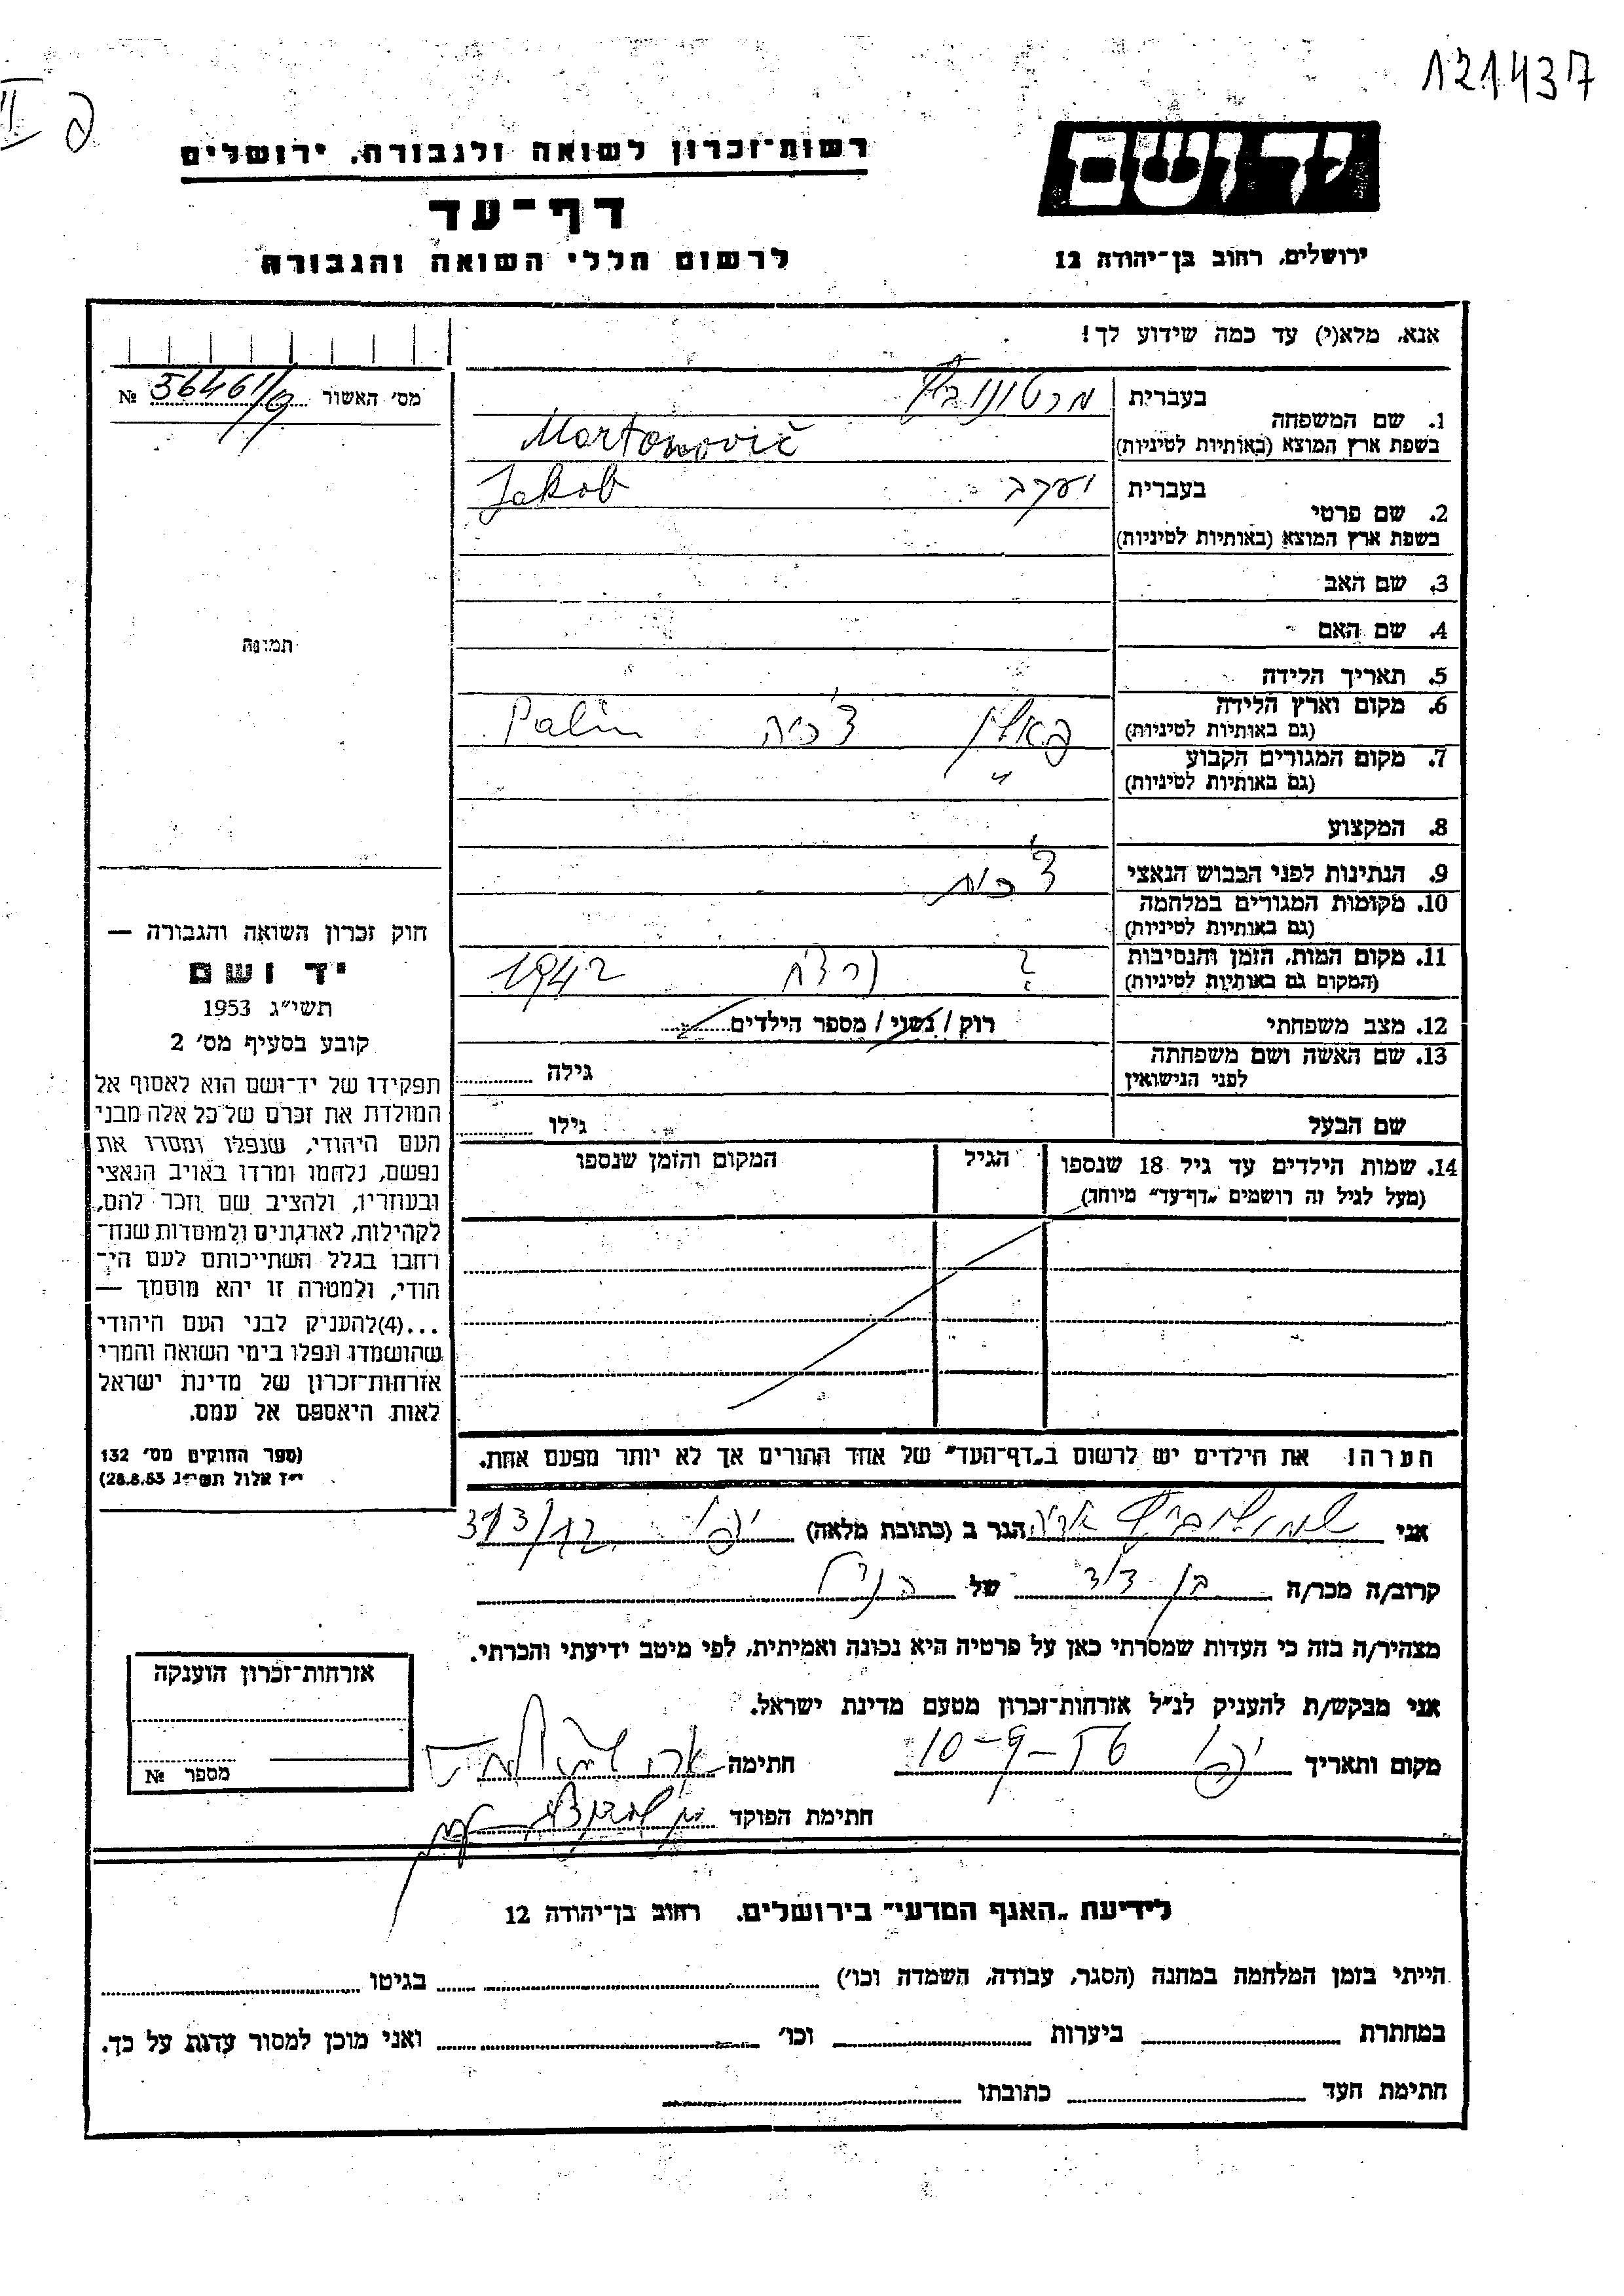 121437
II
רשות־זכרון לשואה ולגבורה, ירושלים
יד ושם
דף־עד
לרשום חללי השואה והגבורה
ירושלים, רחוב בן־יהודה 12
אנא, מלא(י) עד כמה שידוע לך!
מס׳ האשור 56461/9 №
1. שם המשפחה
בעברית מרטונוביץ
בשפת ארץ המוצא (באותיות לטיניות) Martonovič
2. שם פרטי
בעברית יעקב Jakob
בשפת ארץ המוצא (באותיות לטיניות)
3. שם האב
4. שם האם
תמונה
5. תאריך הלידה
6. מקום וארץ הלידה פאלין צ׳כיה Palin
(גם באותיות לטיניות)
7. מקום המגורים הקבוע "
(גם באותיות לטיניות)
8. המקצוע
9. הנתינות לפני הכבוש הנאצי צ׳כית
10. מקומות המגורים במלחמה
(גם באותיות לטיניות)
11. מקום המות, הזמן והנסיבות ? נרצח 1942
(המקום גם באותיות לטיניות)
12. מצב משפחתי רוק / נשוי / מספר הילדים
13. שם האשה ושם משפחתה גילה
לפני הנישואין
שם הבעל גילו
14. שמות הילדים עד גיל 18 שנספו הגיל המקום והזמן שנספו
(מעל לגיל זה רושמים „דף־עד״ מיוחד)
חוק זכרון השואה והגבורה —
יד ושם
תשי״ג 1953
קובע בסעיף מס׳ 2
תפקידו של יד־ושם הוא לאסוף אל
המולדת את זכרם של כל אלה מבני
העם היהודי, שנפלו ומסרו את
נפשם, נלחמו ומרדו באויב הנאצי
ובעוזריו, ולהציב שם וזכר להם,
לקהילות, לארגונים ולמוסדות שנח־
רחבו בגלל השתייכותם לעם הי־
הודי, ולמטרה זו יהא מוסמך —
...(4)להעניק לבני העם היהודי
שהושמדו ונפלו בימי השואה והמרי
אזרחות־זכרון של מדינת ישראל
לאות היאספם אל עמם.
(ספר החוקים מס׳ 132
י״ז אלול תשי״ג 28.8.53)
הערה! את הילדים יש לרשום ב„דף־העד״ של אחד ההורים אך לא יותר מפעם אחת.
אני אריה הגר ב (כתובת מלאה) יפו 313/12
קרוב/ה מכר/ה בן דוד של הנ״ל
מצהיר/ה בזה כי העדות שמסרתי כאן על פרטיה היא נכונה ואמיתית, לפי מיטב ידיעתי והכרתי.
אני מבקש/ת להעניק לנ״ל אזרחות־זכרון מטעם מדינת ישראל.
מקום ותאריך יפו 10-9-56 חתימה
חתימת הפוקד
אזרחות־זכרון הוענקה
מספר №
לידיעת „האגף המדעי״ בירושלים. רחוב בן־יהודה 12
הייתי בזמן המלחמה במחנה (הסגר, עבודה, השמדה וכו׳) בגיטו
במחתרת ביערות וכו׳ ואני מוכן למסור עדות על כך.
חתימת העד כתובתו